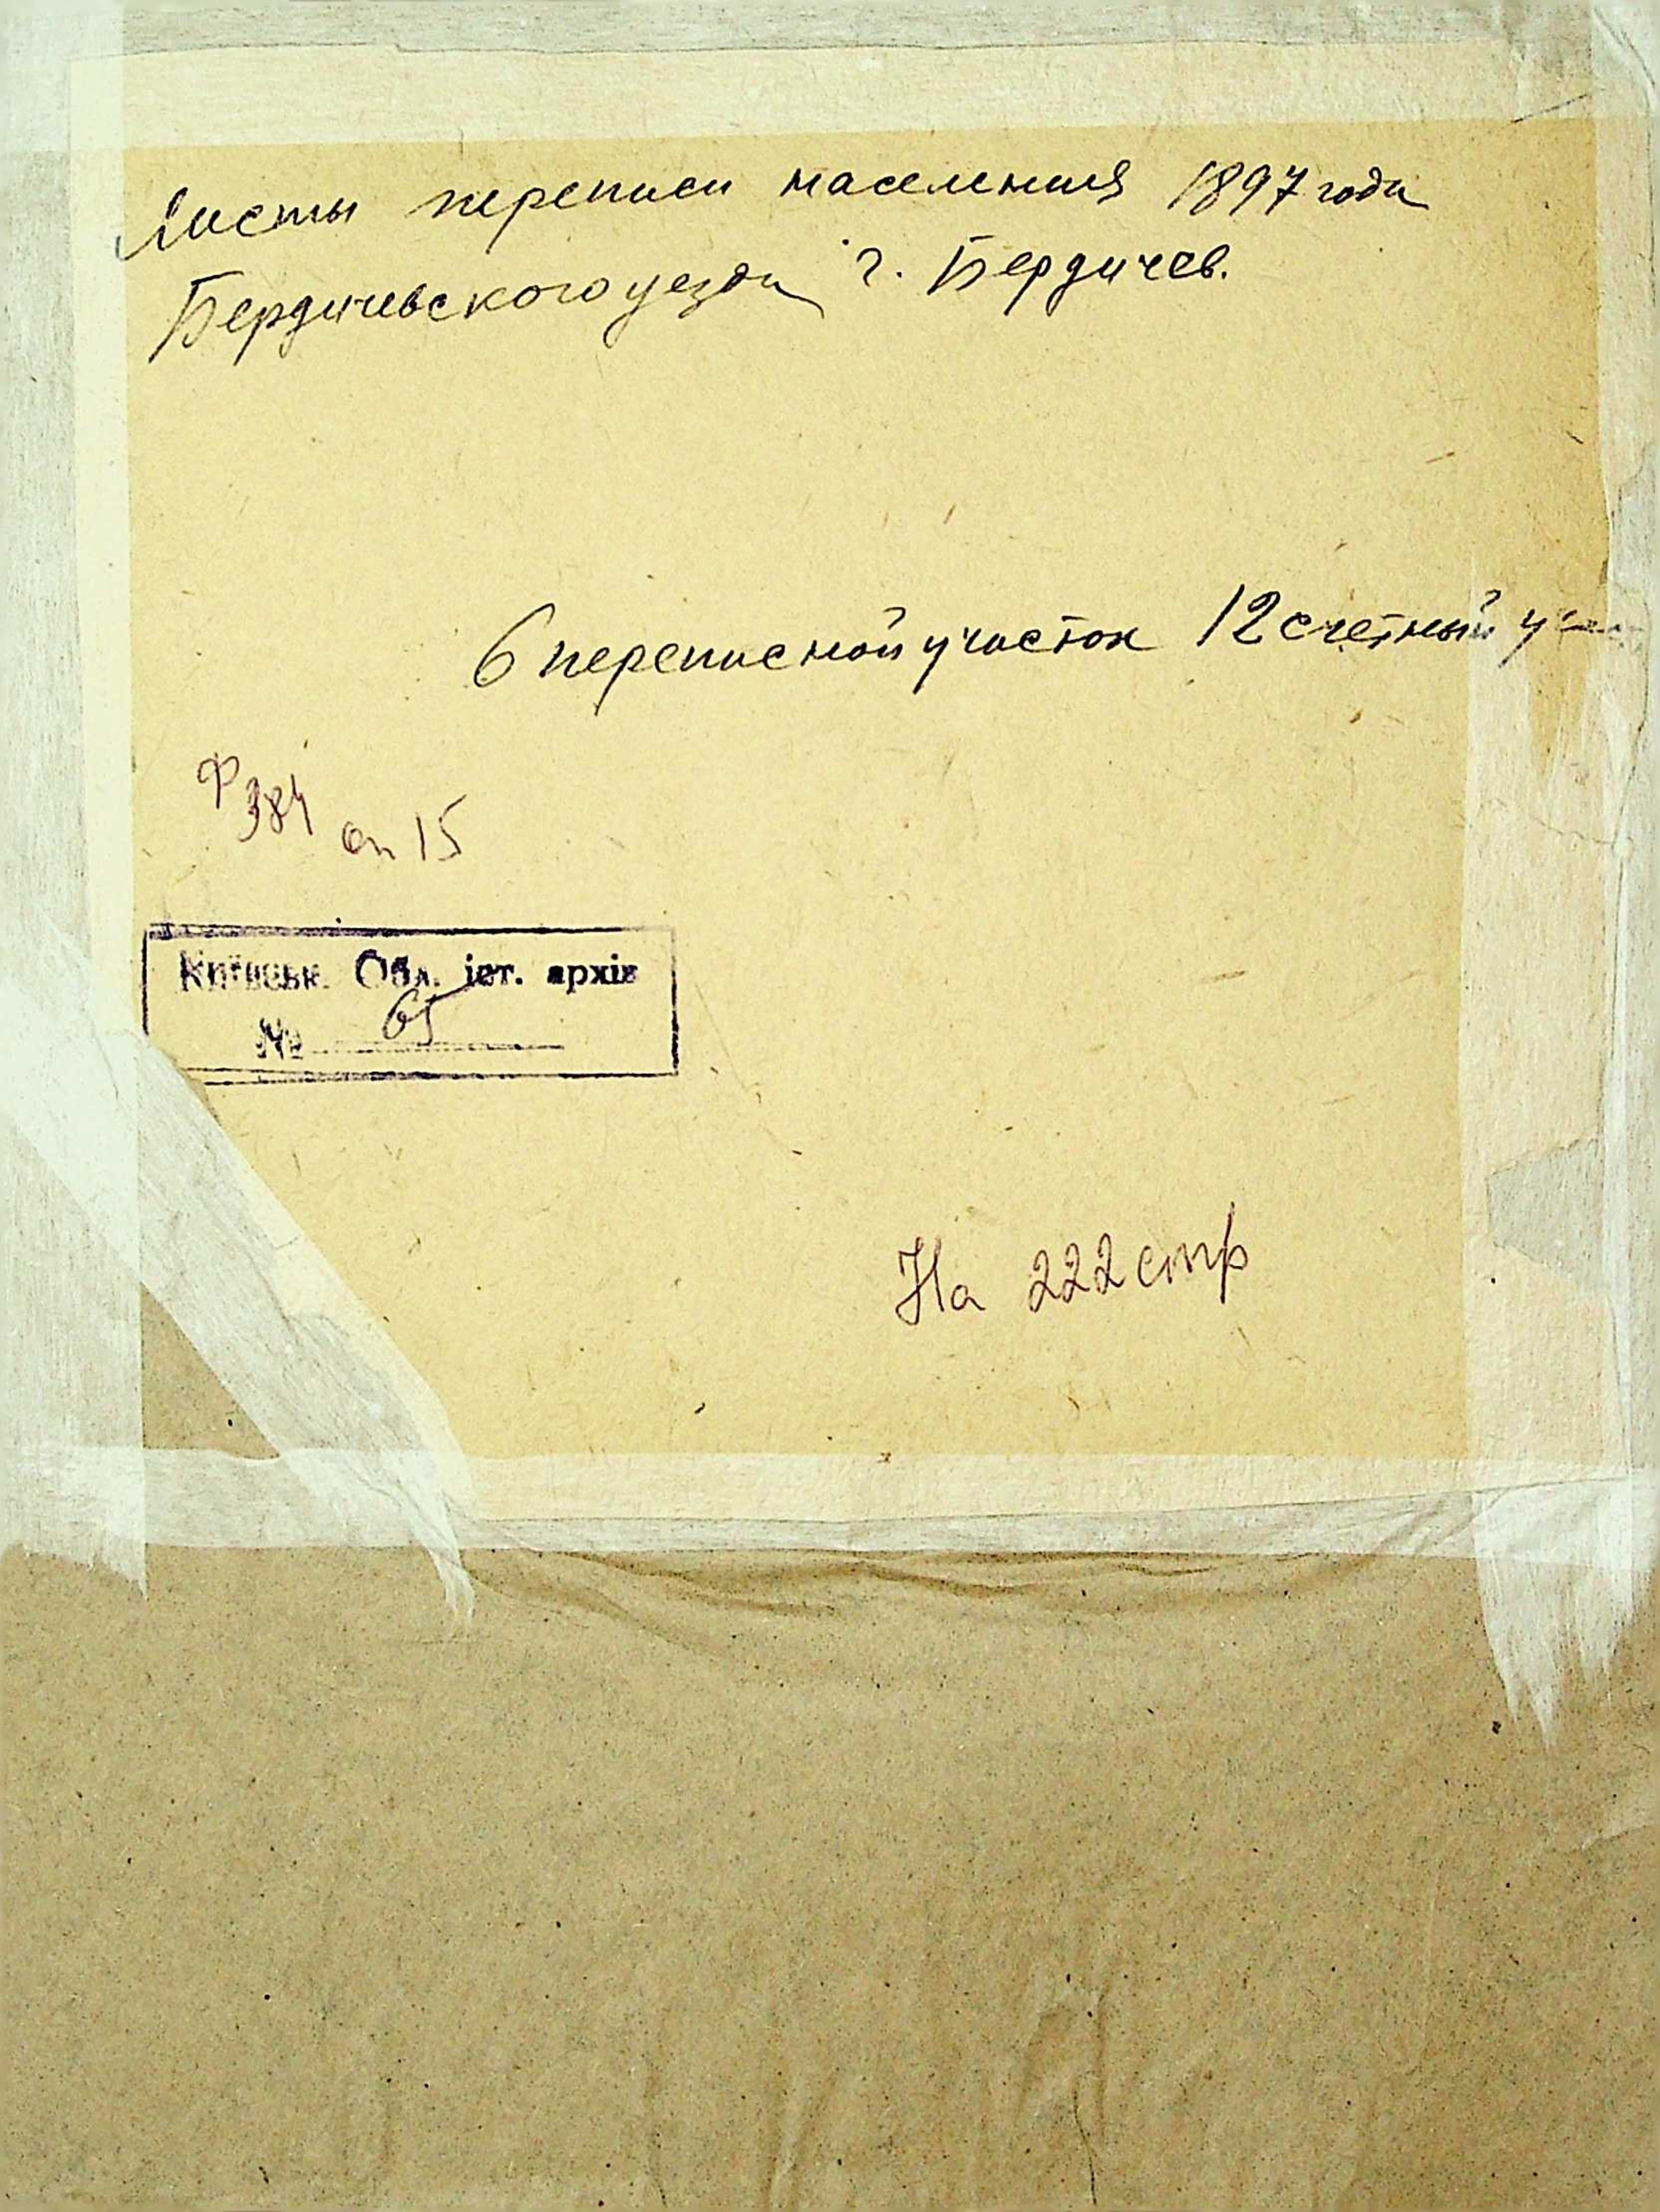 Листы переписи населения 1897 года
Бердичевского уезда г. Бердичев.
6 переписной участок 12 счетный
Ф 384 оп 15
Київськ. Обл. іст. архів
№ 65
На 222 стр